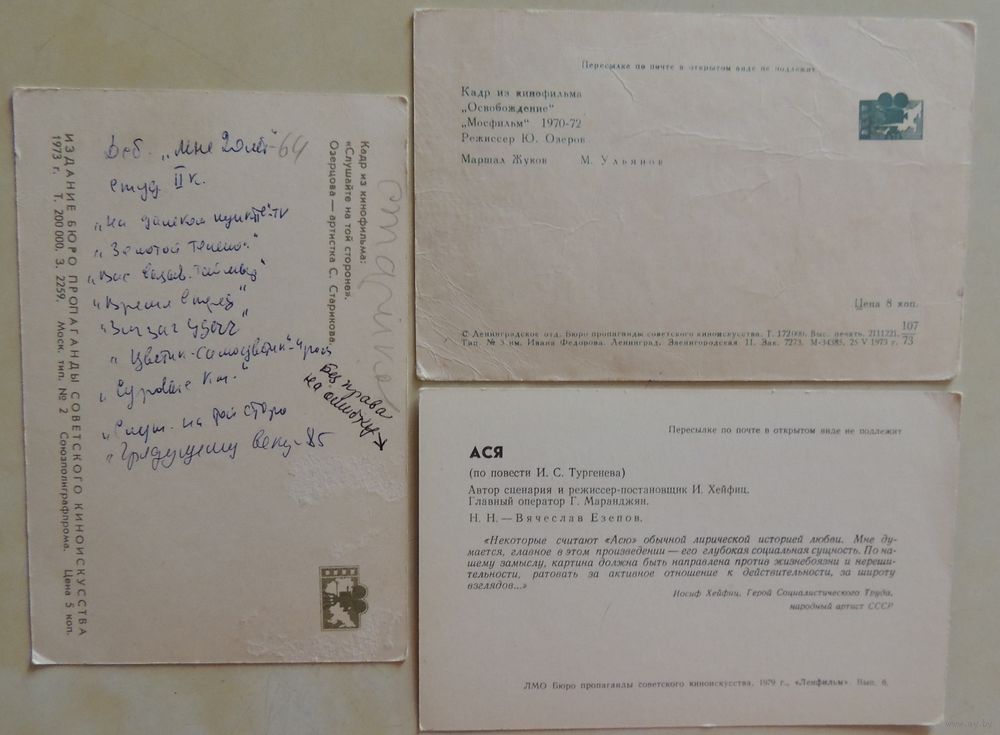 Доб. „Мне 20 лет"-64
студ II к.
„На далеком пункте"-TV
„Золотой теленок"
„Вас вызыв. Таймыр"
„Время
„Зигзаг удачи"
„Цветик-самоцветик"
„Суровые км."
„Слуш. на той сторо
„Грядущему веку-85
Без права
на ошибку
Старикова
Кадр из кинофильма:
«Слушайте на той стороне».
Озерцова — артистка С. Старикова.
ИЗДАНИЕ БЮРО ПРОПАГАНДЫ СОВЕТСКОГО КИНОИСКУССТВА
1973 г. Т. 200 000. З. 2259. Моск. тип. № 2 Союзполиграфпрома. Цена 5 коп.
Пересылке по почте в открытом виде не подлежит
Кадр из кинофильма
„Освобождение"
„Мосфильм" 1970-72
Режиссер Ю. Озеров
Маршал Жуков М. Ульянов
Цена 8 коп.
© Ленинградское отд. Бюро пропаганды советского киноискусства. Т. 172000. Выс. печать. 2111221. 107/73
Тип. № 3 им. Ивана Федорова. Ленинград. Звенигородская 11. Зак. 7273. М-34385. 25 V 1973 г.
Пересылке по почте в открытом виде не подлежит
АСЯ
(по повести И. С. Тургенева)
Автор сценария и режиссер-постановщик И. Хейфиц.
Главный оператор Г. Маранджян.
Н. Н. — Вячеслав Езепов.
«Некоторые считают «Асю» обычной лирической историей любви. Мне ду-
мается, главное в этом произведении — его глубокая социальная сущность. По на-
шему замыслу, картина должна быть направлена против жизнебоязни и нереши-
тельности, ратовать за активное отношение к действительности, за широту
взглядов...»
Иосиф Хейфиц, Герой Социалистического Труда,
народный артист СССР
ЛМО Бюро пропаганды советского киноискусства, 1979 г., «Ленфильм». Вып. 6.